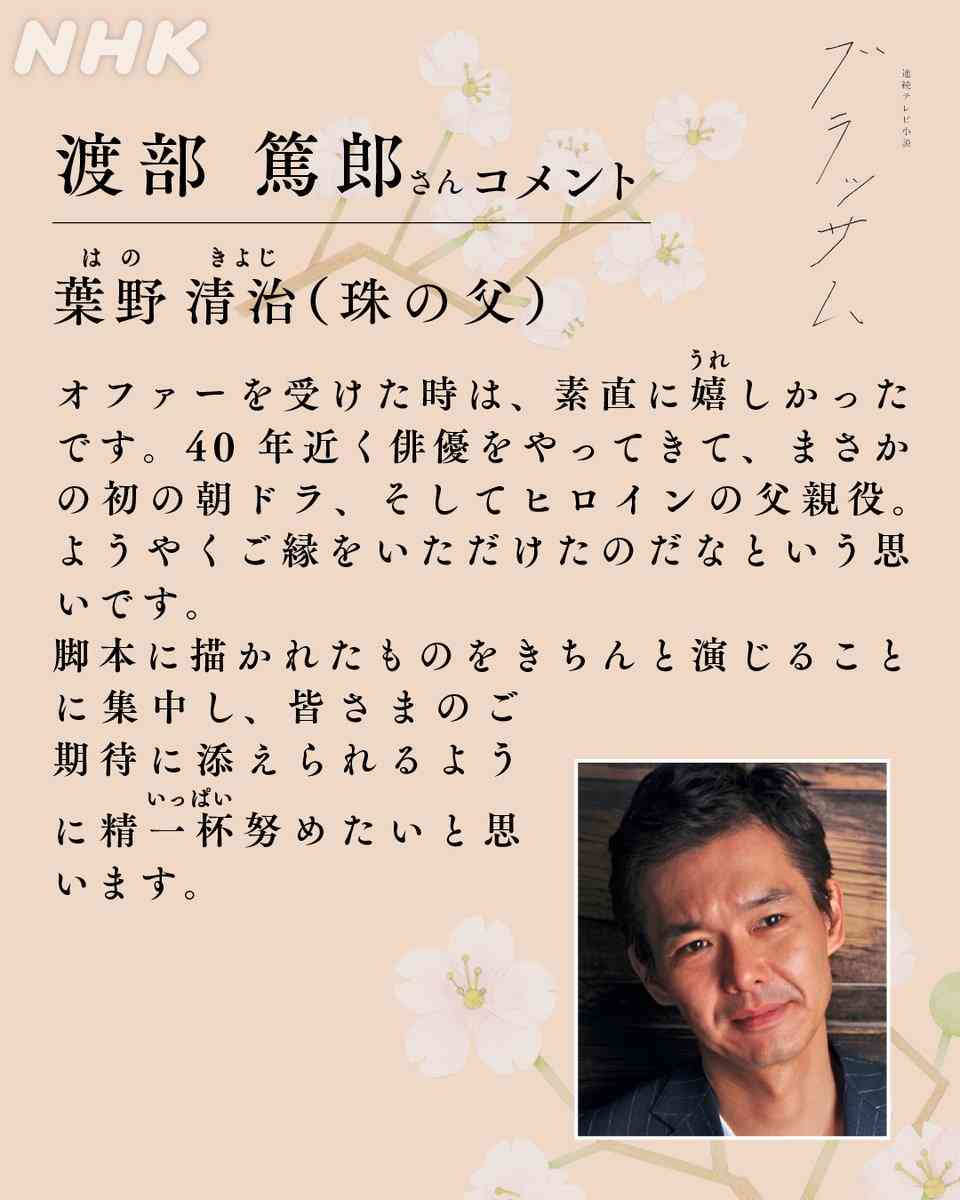 NHK
連続テレビ小説
ブラッサム
渡部 篤郎さんコメント
はの きよじ
葉野 清治(珠の父)
うれ
オファーを受けた時は、素直に嬉しかった
です。40 年近く俳優をやってきて、まさか
の初の朝ドラ、そしてヒロインの父親役。
ようやくご縁をいただけたのだなという思
いです。
脚本に描かれたものをきちんと演じること
に集中し、皆さまのご
期待に添えられるよう
いっぱい
に精一杯努めたいと思
います。